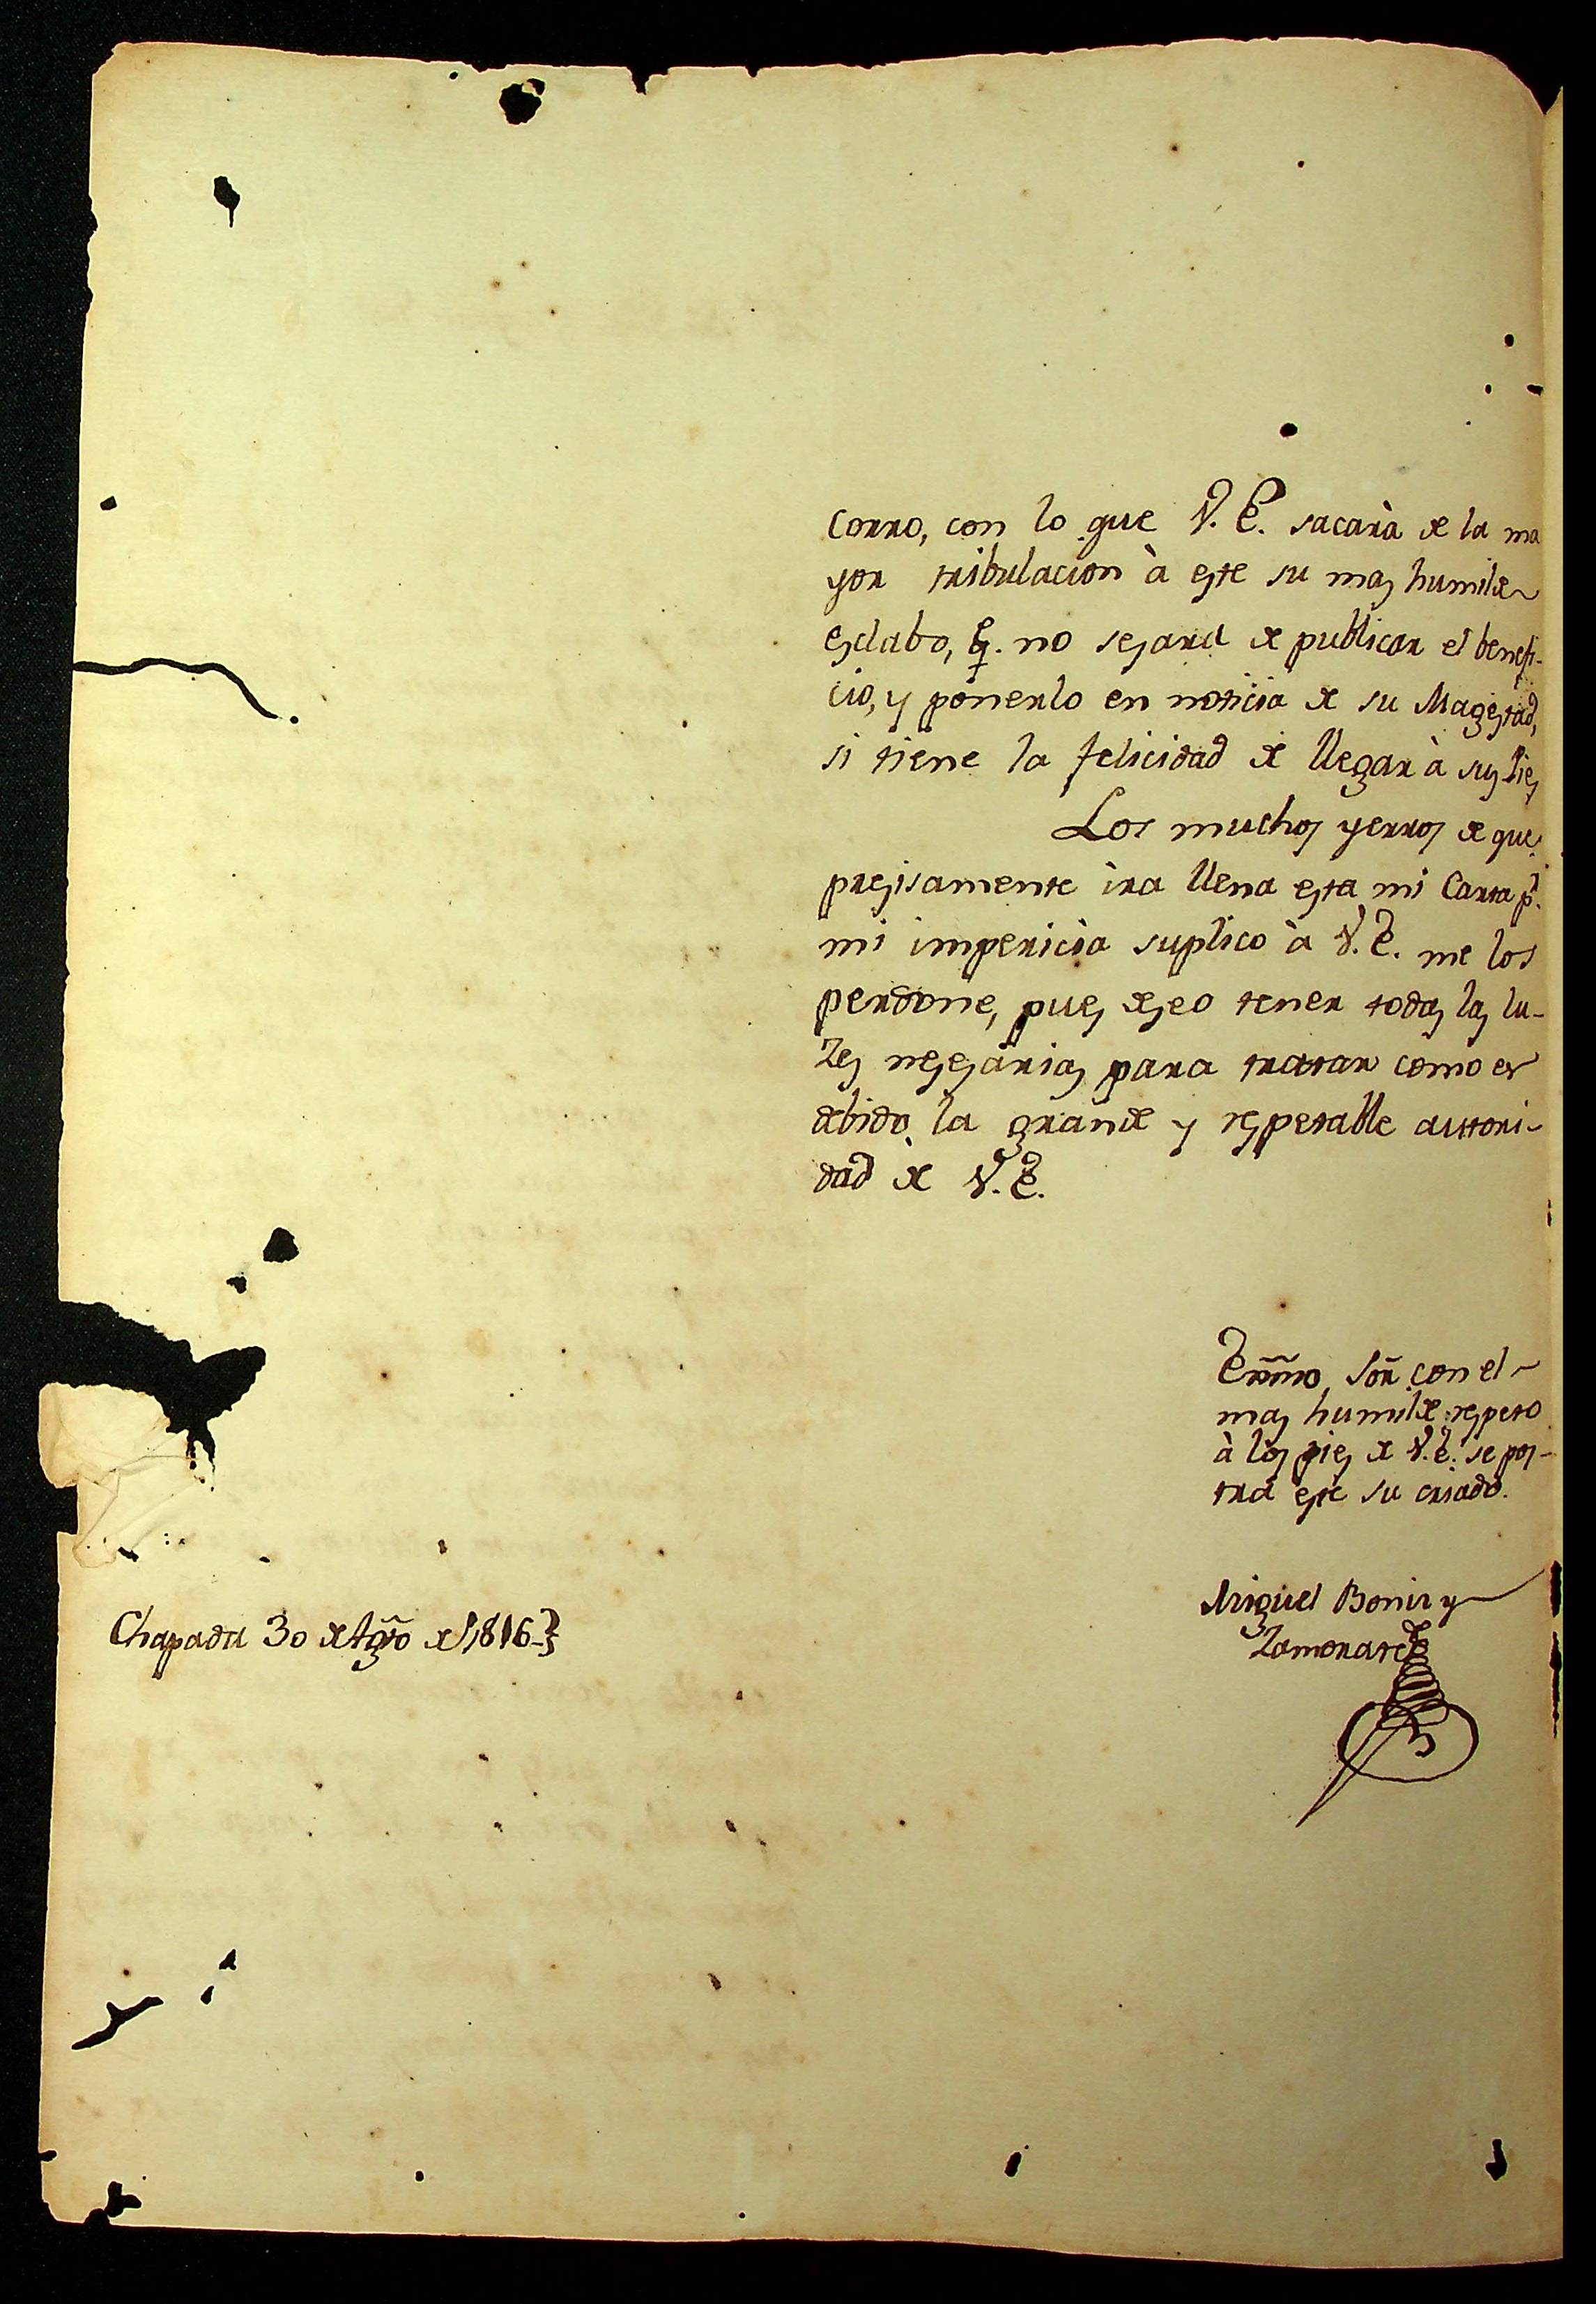 corro, con lo que V. E. sacarà de la ma
yor tribulacion à este su mas humilde
esclabo, q. no sesara de publicar el benefi-
cio, y ponerlo en noticia de su Magestad,
si tiene la felicidad de llegar à sus Pies
Los muchos yerros de que
presisamente ira llena esta mi Carta pr.
mi impericia suplico à V. E. me los
perdone, pues deseo tener todas las lu-
zes nesesarias para tratar como es
debido la grande y respetable autori-
dad de V. E.
Exmo Sor con el
mas humilde respeto
à los pies de V. E. se pos-
tra este su criado.
Miguel Bonir y
Zamorate
Chapada 30 de Agto de 1816